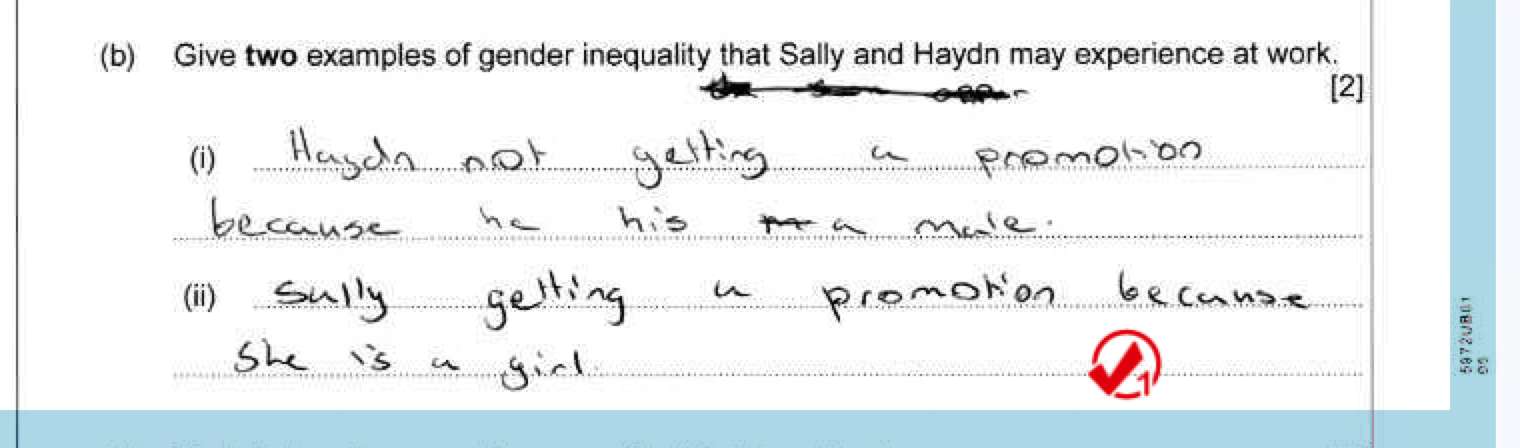 (b) Give two examples of gender inequality that Sally and Haydn may experience at work.
[2]
(i) Haydn not getting a promotion
because he his a male.
(ii) Sally getting a promotion because
She is a girl.
1
5972UB01
05